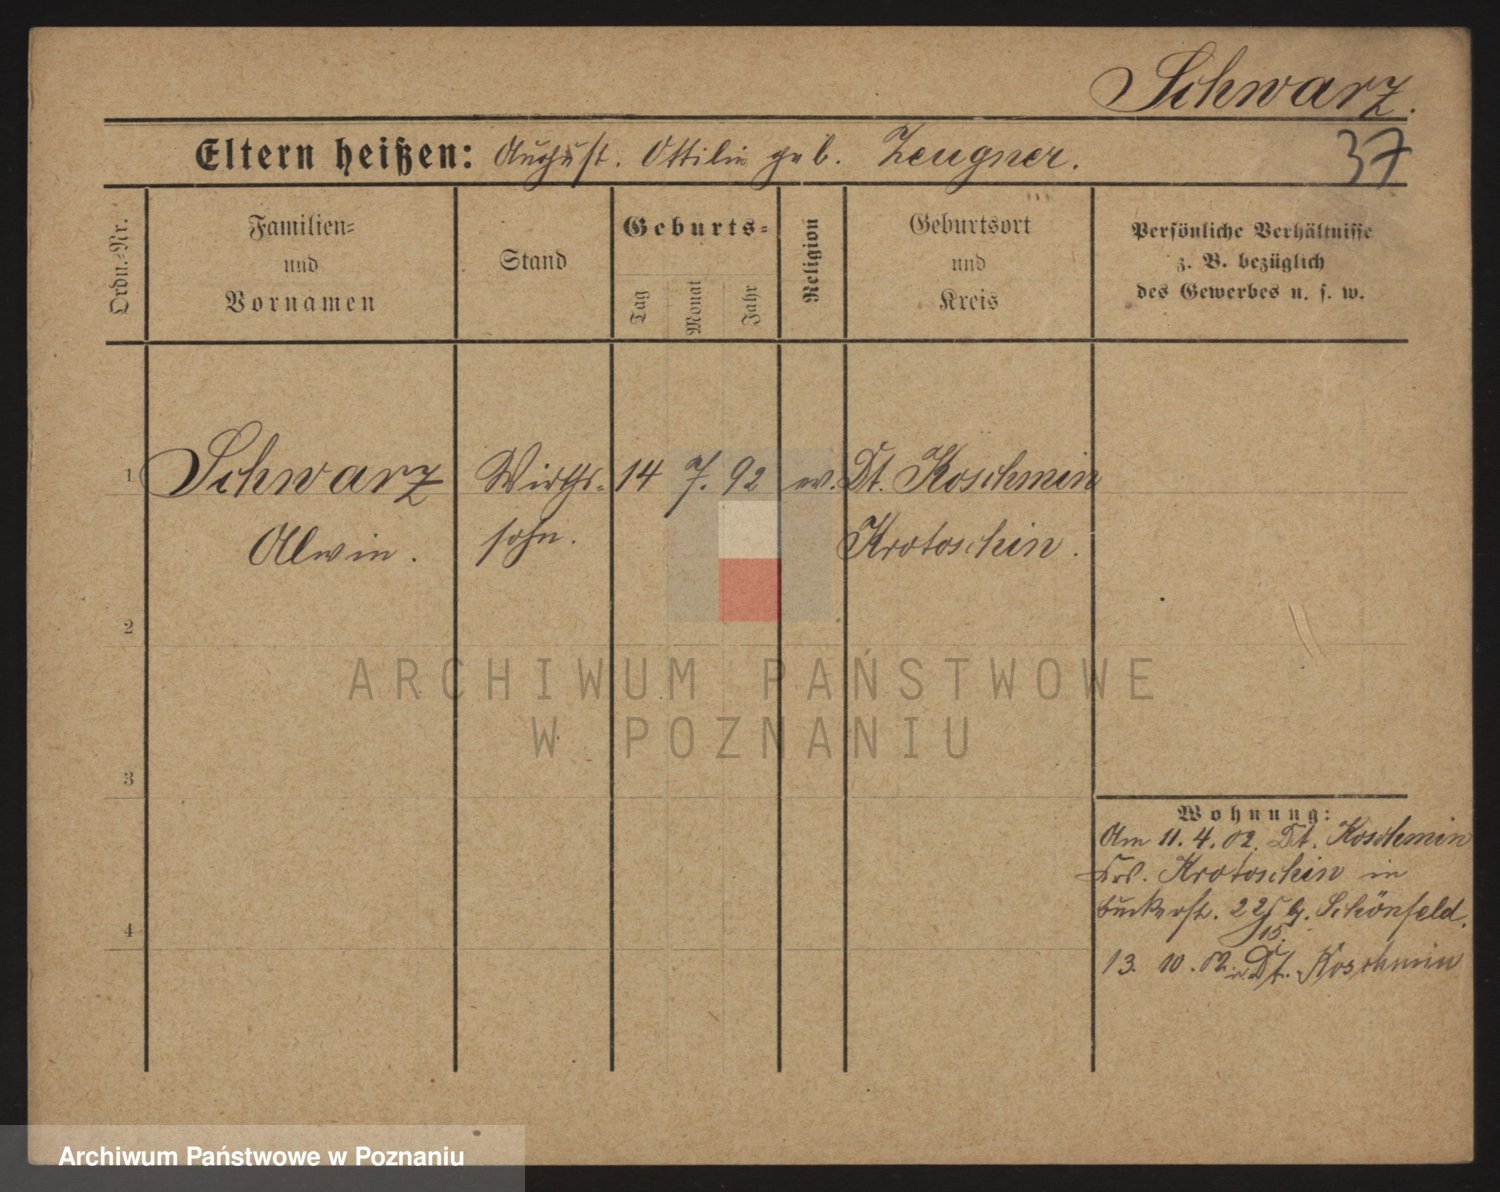 Schwarz.
Eltern heißen: August. Ottilie geb. Zeugner.
37
Ordn.-Nr.
Familien-
und
Vornamen
Stand
Geburts-
Tag
Monat
Jahr
Religion
Geburtsort
und
Kreis
Persönliche Verhältnisse
z. B. bezüglich
des Gewerbes u. s. w.
1 Schwarz Wirths- 14 7. 92 ev. Dt. Koschmin
Alwin. sohn. Krotoschin.
2
ARCHIWUM PAŃSTWOWE
W POZNANIU
3
Wohnung:
Am 11. 4. 02. Dt. Koschmin
Krotoschin in
22 b. Schönfeld.
15.
4
13. 10. 02. Dt. Koschmin
Archiwum Państwowe w Poznaniu